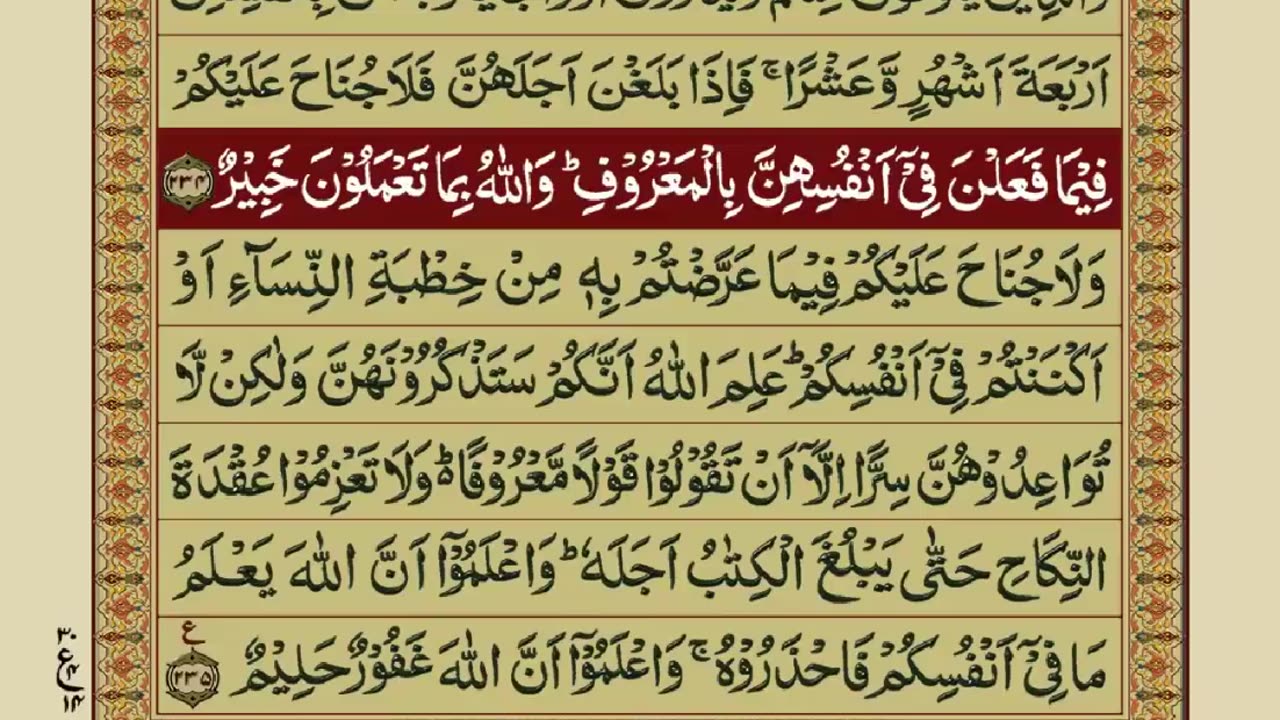 اَرۡبَعَةَ اَشۡهُرٍ وَّعَشۡرًا ۚ فَاِذَا بَلَغۡنَ اَجَلَهُنَّ فَلَا جُنَاحَ عَلَيۡكُمۡ
فِيۡمَا فَعَلۡنَ فِىۡٓ اَنۡفُسِهِنَّ بِالۡمَعۡرُوۡفِ ؕ وَاللّٰهُ بِمَا تَعۡمَلُوۡنَ خَبِيۡرٌ ۲۳۴
وَلَا جُنَاحَ عَلَيۡكُمۡ فِيۡمَا عَرَّضۡتُمۡ بِهٖ مِنۡ خِطۡبَةِ النِّسَآءِ اَوۡ
اَكۡنَنۡتُمۡ فِىۡٓ اَنۡفُسِكُمۡ ؕ عَلِمَ اللّٰهُ اَنَّكُمۡ سَتَذۡكُرُوۡنَهُنَّ وَلٰكِنۡ لَّا
تُوَاعِدُوۡهُنَّ سِرًّا اِلَّاۤ اَنۡ تَقُوۡلُوۡا قَوۡلًا مَّعۡرُوۡفًا ؕ وَلَا تَعۡزِمُوۡا عُقۡدَةَ
النِّکَاحِ حَتّٰى يَبۡلُغَ الۡكِتٰبُ اَجَلَهٗ ؕ وَاعۡلَمُوۡٓا اَنَّ اللّٰهَ يَعۡلَمُ
مَا فِىۡٓ اَنۡفُسِكُمۡ فَاحۡذَرُوۡهُ ۚ وَاعۡلَمُوۡٓا اَنَّ اللّٰهَ غَفُوۡرٌ حَلِيۡمٌ ۲۳۵
ع
۳۰
ع ۴
۱۴